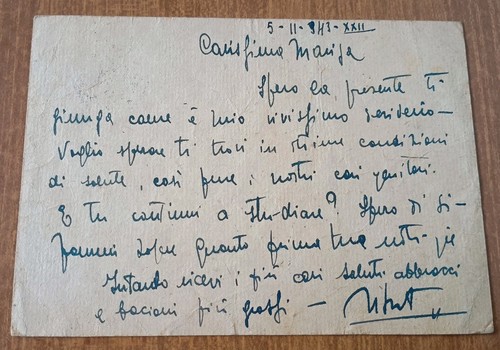 5-11-943-XXII
Carissima Marisa
Spero la presente ti
giunga come è mio vivissimo desiderio-
Voglio sperare ti trovi in ottime condizioni
di salute, così pure i nostri cari genitori.
E tu continui a stu-diare? Spero di si-
quanto prima tue noti-zie
Intanto ricevi i più cari saluti abbracci
e bacioni più grossi -